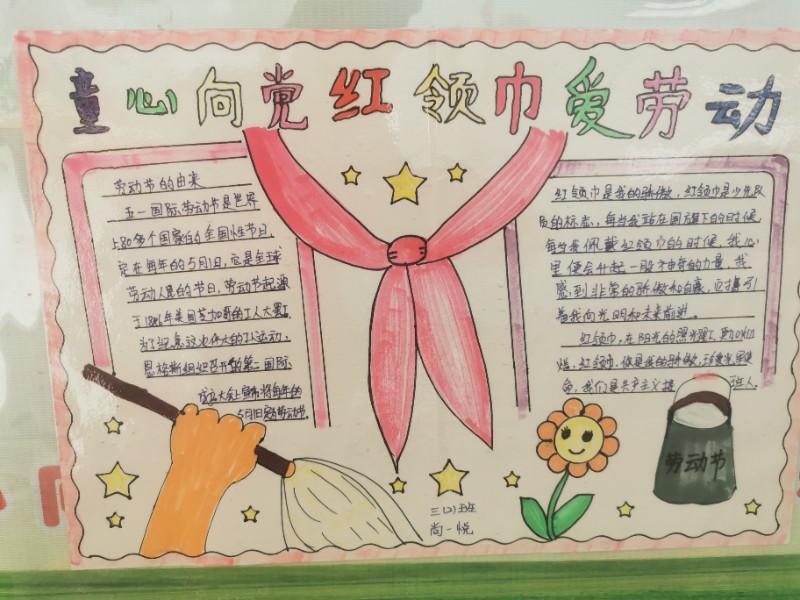 童心向党红领巾爱劳动
劳动节的由来
五一国际劳动节是世界
上80多个国家的全国性节日,
定在每年的5月1日,它是全球
劳动人民的节日,劳动节起源
于1886年美国芝加哥的工人大罢工
为了纪念这次伟大的工人运动,
恩格斯组织召开的第二国际
成立大会上宣布将每年的
5月1日定为劳动节。
红领巾是我的骄傲,红领巾是少先队
员的标志,每当我站在国旗下的时候
每当我佩戴红领巾的时候,我心
里便会升起一股神奇的力量,我
感到非常的骄傲和自豪,它指引
着我向光明和未来前进。
红领巾,在阳光的照耀下
红领巾,你是我的骄傲
我们是共产主义接班人。
劳动节
三(2)班
尚一悦